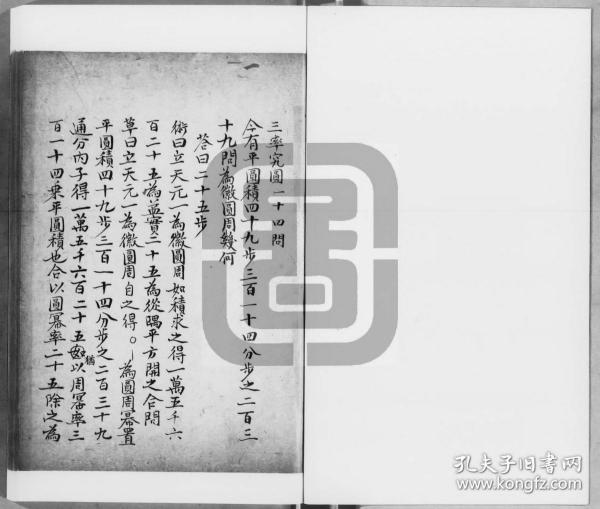 三率究圓一十四問
今有平圓積四十九步三百一十四分步之二百三
十九問為徽圓周幾何
荅曰二十五步
術曰立天元一為徽圓周如積求之得一萬五千六
百二十五為益實二十五為從隅平方開之合問
草曰立天元一為徽圓周自之得〇〡為圓周冪置
平圓積四十九步三百一十四分步之二百三十九
通分內子得一萬五千六百二十五
猶以周冪率三
百一十四乘平圓積也合以圓冪率二十五除之為
孔夫子旧书网
www.kongfz.com